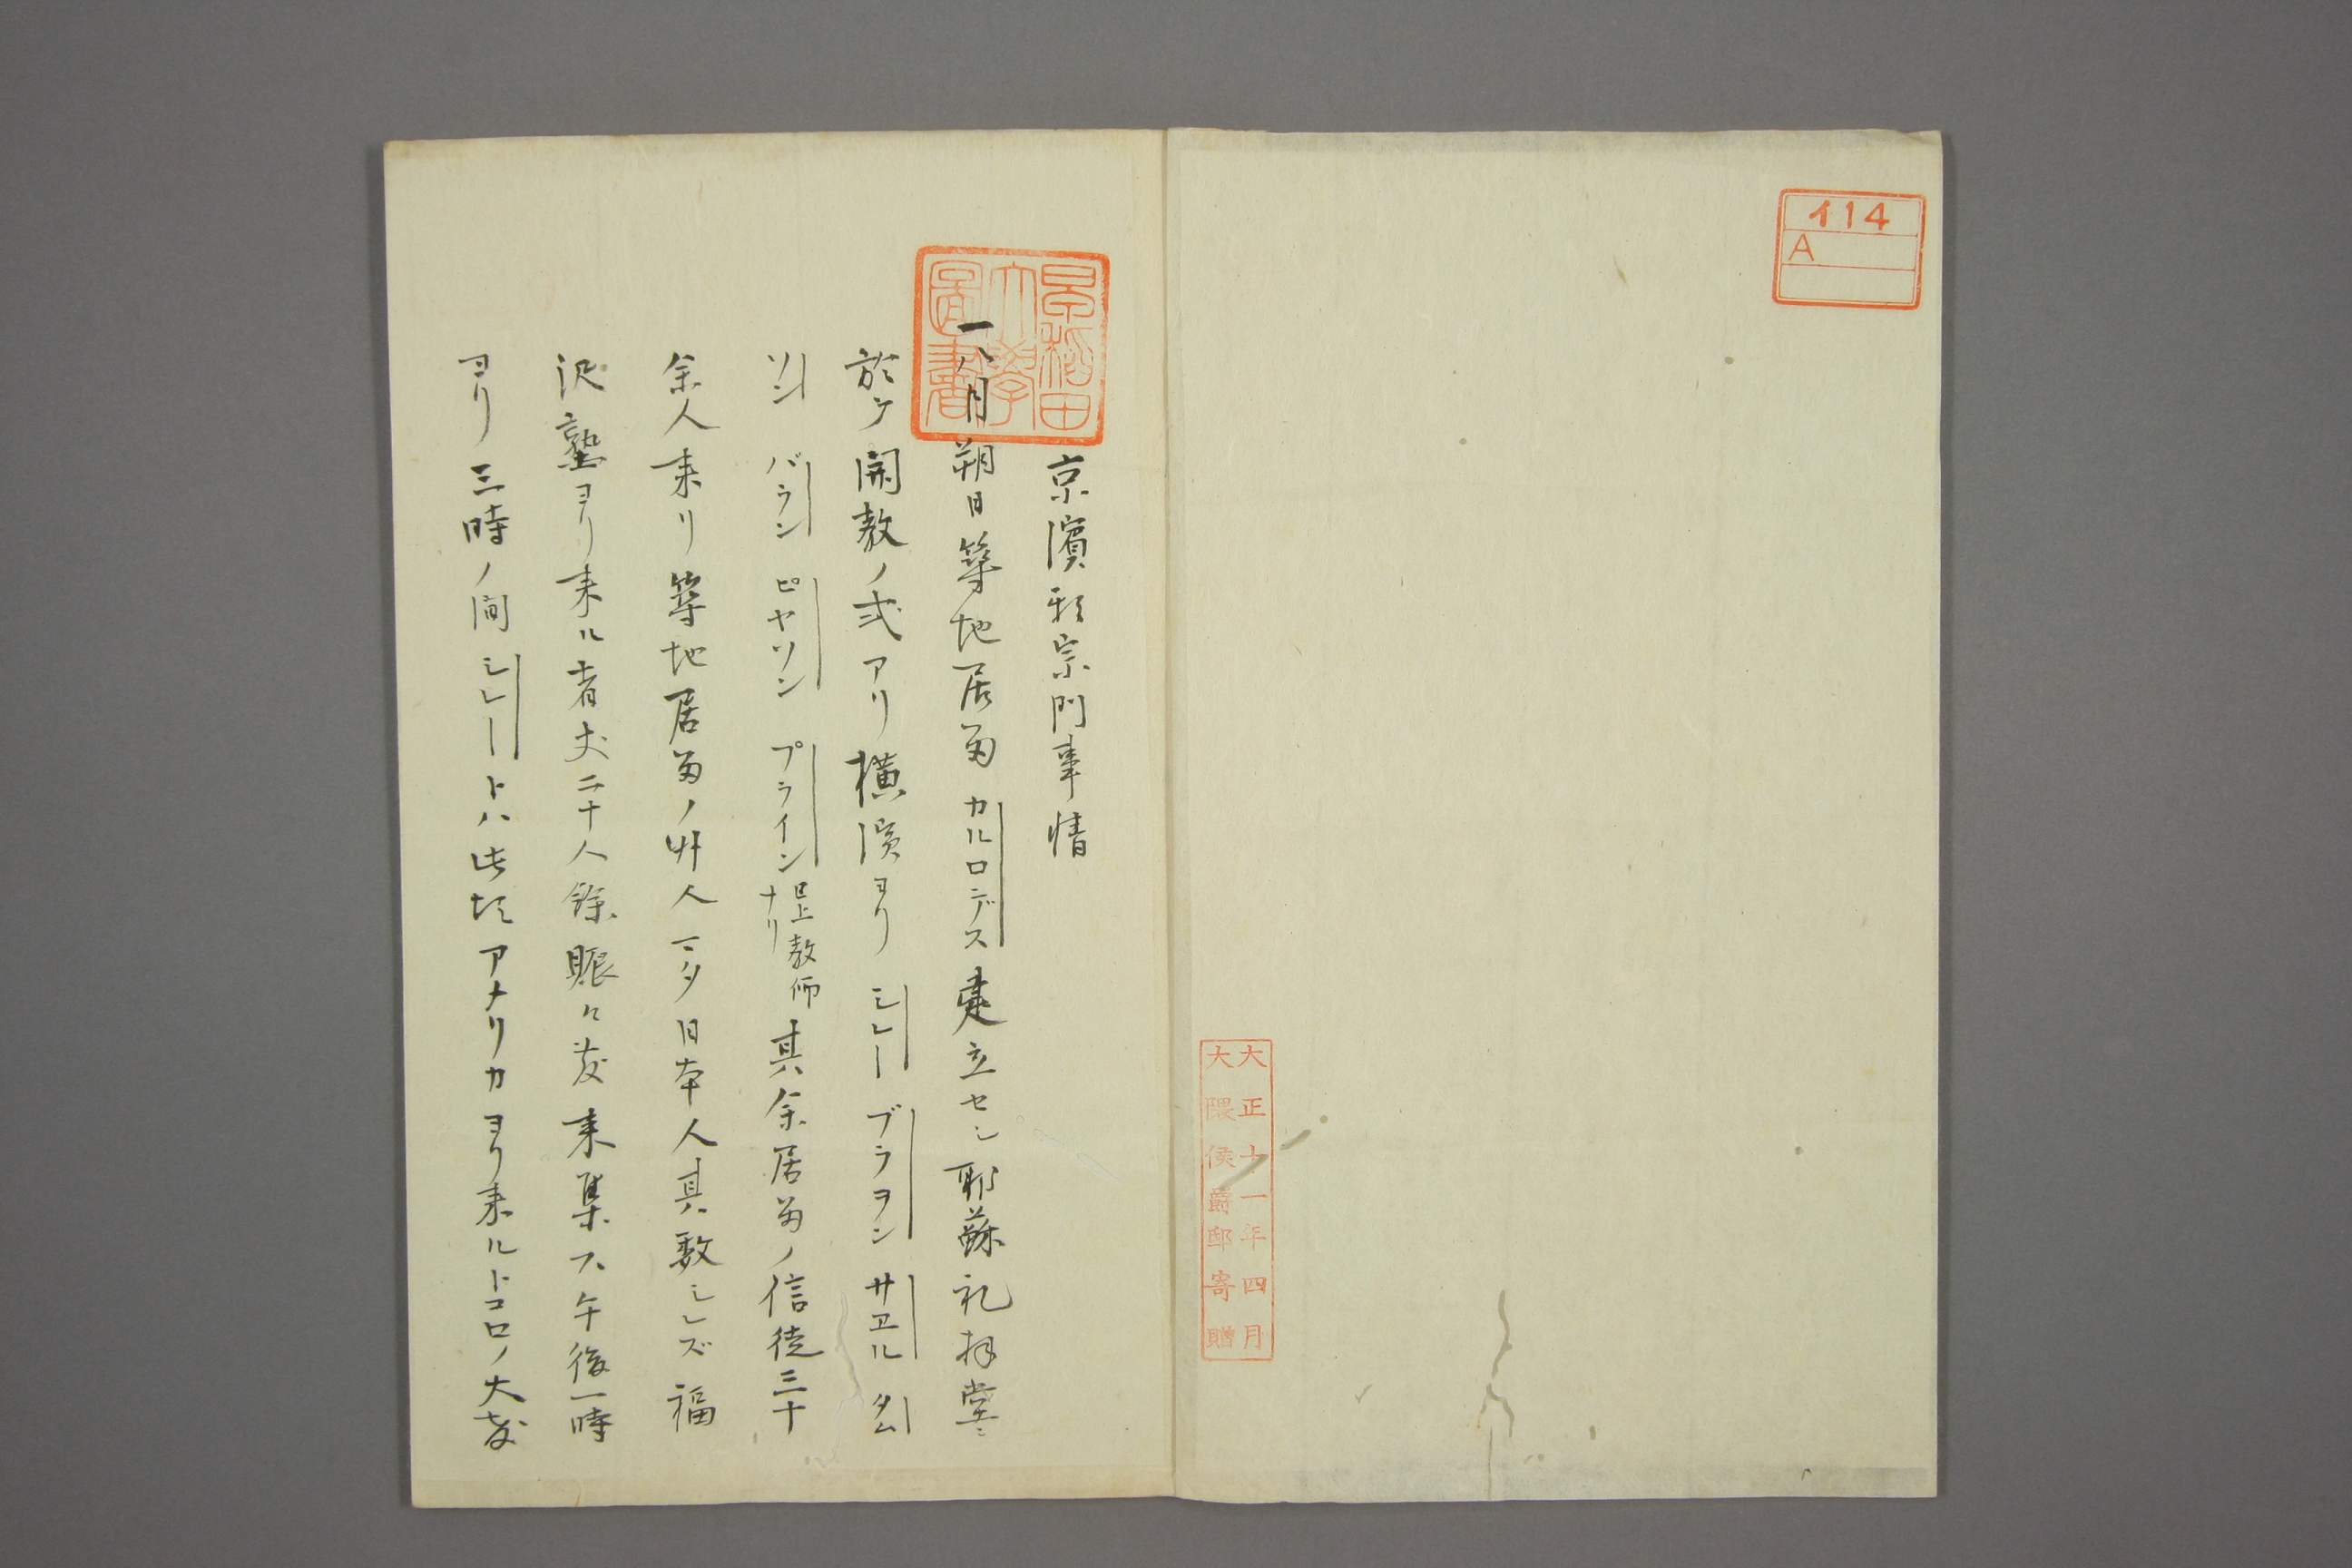 イ14
A
大正十一年四月
大隈侯爵邸寄贈
早稲田
大學
圖書
京濱邪宗門事情
一八月朔日築地居留カルロデス建立セシ耶蘇礼拝堂ニ
於テ開教ノ式アリ横濱ヨリミレーブラヲンサヱルタム
ソンバランピヤソンプライン已上教師ナリ其余居留ノ信徒三十
余人来リ築地居留ノ外人マタ日本人其数シレズ福
沢塾ヨリ来ル者丈二十人餘賑々敷来集ス午後一時
ヨリ三時ノ間ミレートハ此頃アメリカヨリ来ルトコロノ大教